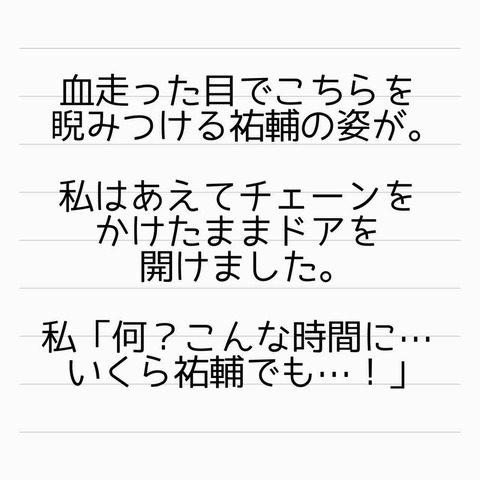 血走った目でこちらを
睨みつける祐輔の姿が。
私はあえてチェーンを
かけたままドアを
開けました。
私「何？こんな時間に…
いくら祐輔でも…！」